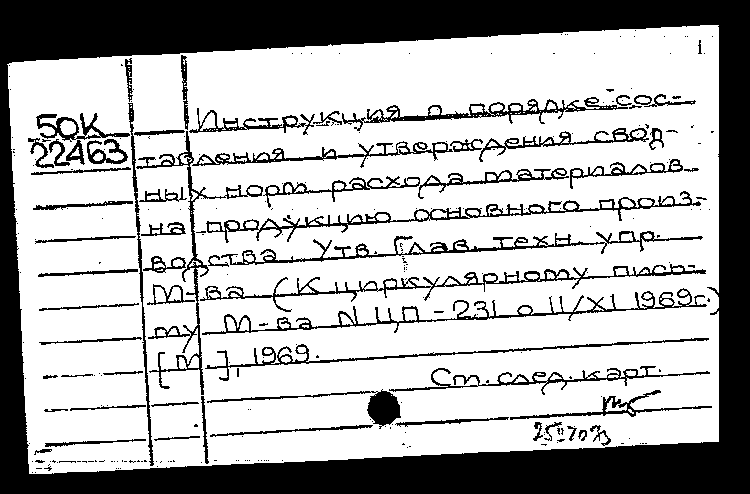 1
50К
22463
Инструкция о порядке сос-
тавления и утверждения свод-
ных норм расхода материалов
на продукцию основного произ-
водства. Утв. Глав. техн. упр.
М-ва (К циркулярному пись-
му М-ва N ЦП-231 о 11/XI 1969г.)
[М.], 1969.
См. след. карт.